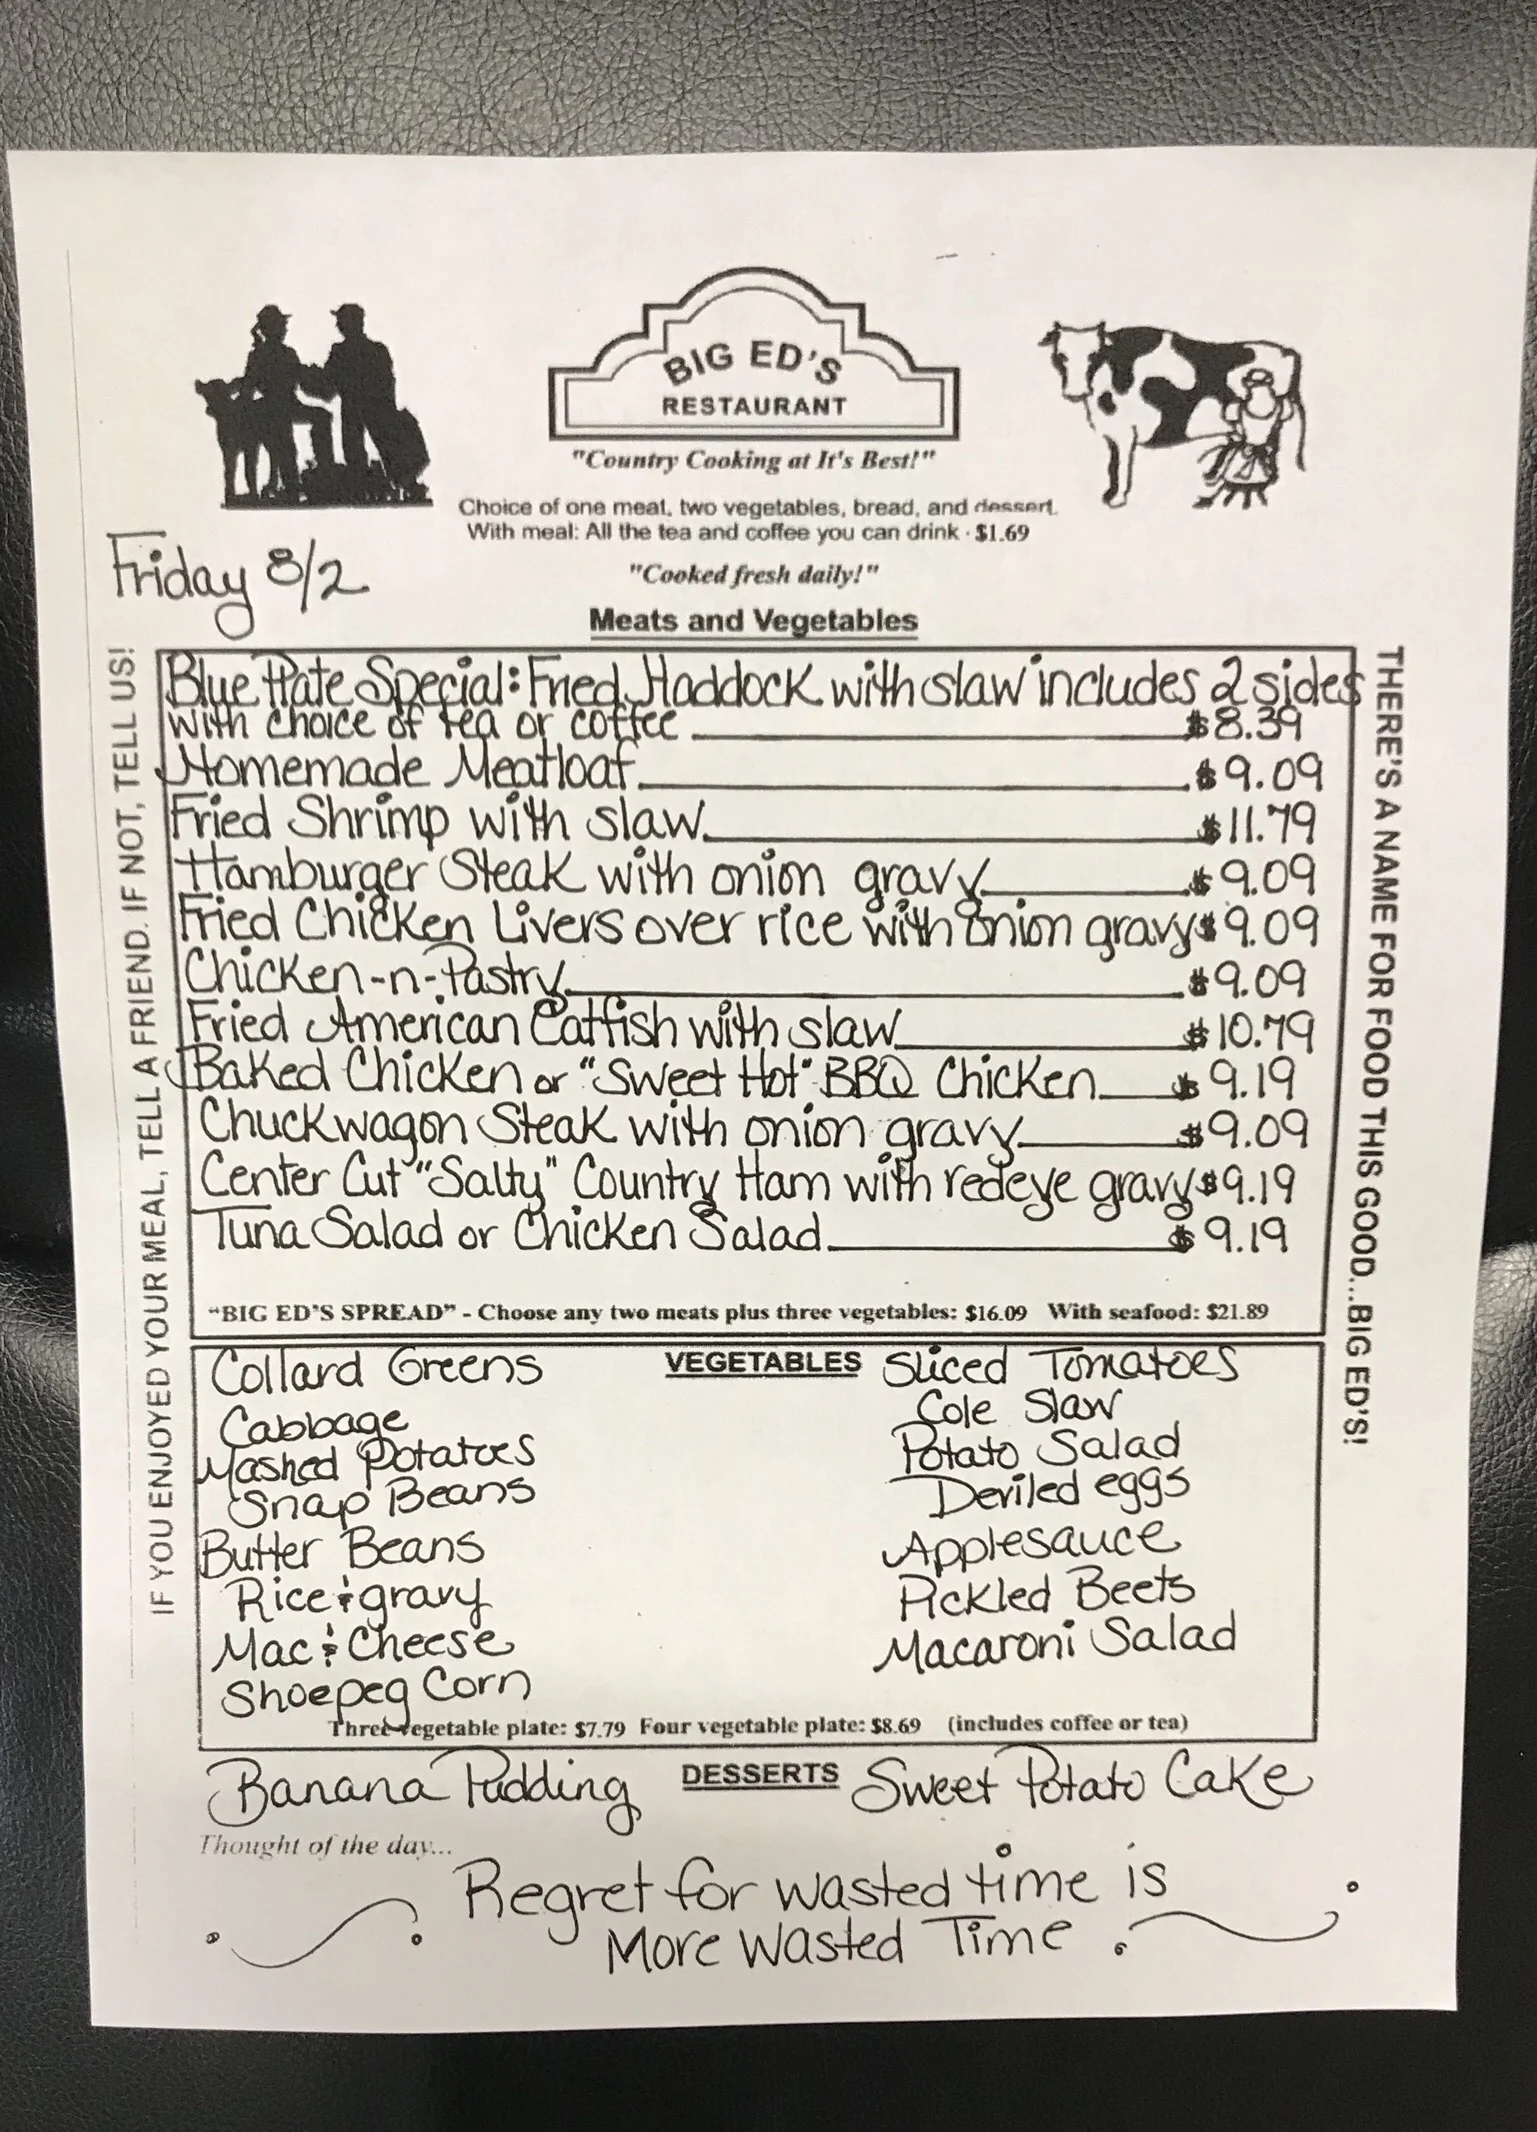 BIG ED'S
RESTAURANT
"Country Cooking at It's Best!"
Choice of one meat, two vegetables, bread, and dessert.
With meal: All the tea and coffee you can drink · $1.69
Friday 8/2
"Cooked fresh daily!"
Meats and Vegetables
IF YOU ENJOYED YOUR MEAL, TELL A FRIEND. IF NOT, TELL US!
Blue Plate Special: Fried Haddock with slaw includes 2 sides
with choice of tea or coffee $8.39
Homemade Meatloaf $9.09
Fried Shrimp with slaw $11.79
Hamburger Steak with onion gravy $9.09
Fried Chicken Livers over rice with onion gravy $9.09
Chicken-n-Pastry $9.09
Fried American Catfish with slaw $10.79
Baked Chicken or "Sweet Hot" BBQ Chicken $9.19
Chuckwagon Steak with onion gravy $9.09
Center Cut "Salty" Country Ham with redeye gravy $9.19
Tuna Salad or Chicken Salad $9.19
"BIG ED'S SPREAD" - Choose any two meats plus three vegetables: $16.09 With seafood: $21.89
THERE'S A NAME FOR FOOD THIS GOOD...BIG ED'S!
VEGETABLES
Collard Greens
Cabbage
Mashed Potatoes
Snap Beans
Butter Beans
Rice & gravy
Mac & Cheese
Shoepeg Corn
Sliced Tomatoes
Cole Slaw
Potato Salad
Deviled eggs
Applesauce
Pickled Beets
Macaroni Salad
Three vegetable plate: $7.79 Four vegetable plate: $8.69 (includes coffee or tea)
Banana Pudding DESSERTS Sweet Potato Cake
Thought of the day...
Regret for wasted time is
More Wasted Time.